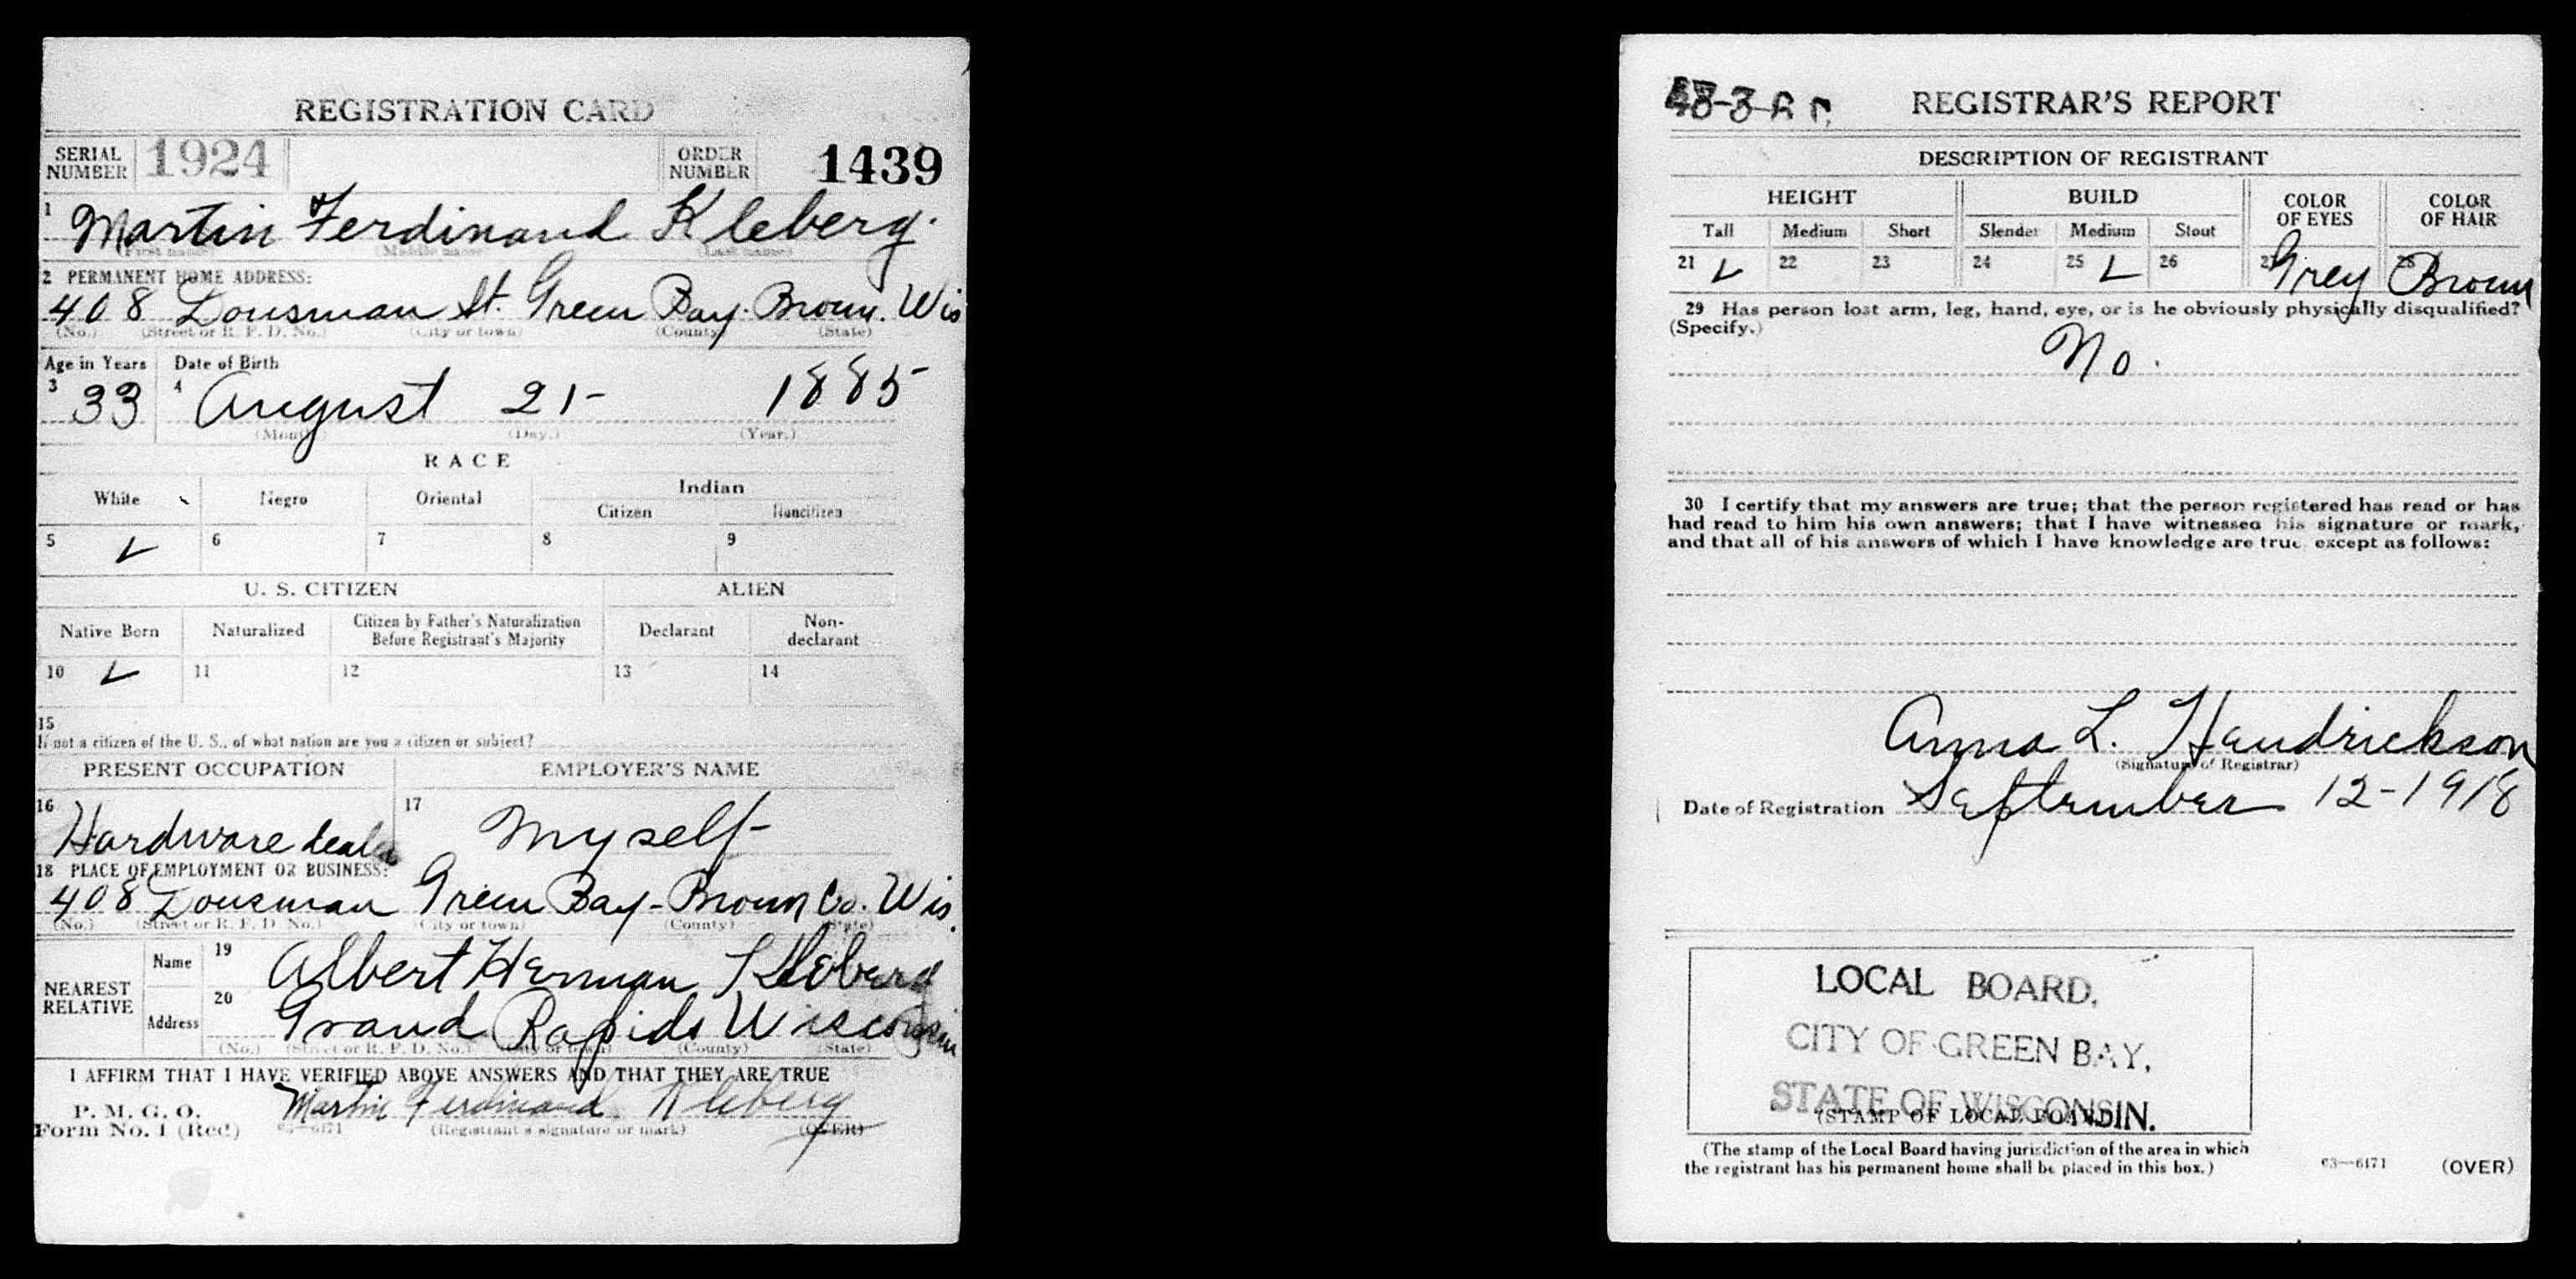 REGISTRATION CARD
SERIAL NUMBER 1924 ORDER NUMBER 1439
1 Martin Ferdinand Kleberg.
(First name) (Middle name) (Last name)
2 PERMANENT HOME ADDRESS:
408 Dousman St. Green Bay. Brown. Wis
(No.) (Street or R. F. D. No.) (City or town) (County) (State)
Age in Years Date of Birth
3 33 4 August 21- 1885
(Month) (Day.) (Year.)
RACE
White Negro Oriental Indian
Citizen Noncitizen
5 6 7 8 9
U. S. CITIZEN ALIEN
Native Born Naturalized Citizen by Father's Naturalization Before Registrant's Majority Declarant Non-declarant
10 11 12 13 14
15
If not a citizen of the U. S., of what nation are you a citizen or subject?
PRESENT OCCUPATION EMPLOYER'S NAME
16 Hardware dealer 17 Myself-
18 PLACE OF EMPLOYMENT OR BUSINESS:
408 Dousman Green Bay- Brown Co. Wis.
(No.) (Street or R. F. D. No.) (City or town) (County) (State)
NEAREST RELATIVE Name 19 Albert Herman Kleberg
Address 20 Grand Rapids Wisconsin
(No.) (Street or R. F. D. No.) (City or town) (County) (State)
I AFFIRM THAT I HAVE VERIFIED ABOVE ANSWERS AND THAT THEY ARE TRUE
P. M. G. O. Form No. 1 (Red) Martin Ferdinand Kleberg
03—6171 (Registrant's signature or mark) (OVER)
REGISTRAR'S REPORT
DESCRIPTION OF REGISTRANT
HEIGHT BUILD COLOR OF EYES COLOR OF HAIR
Tall Medium Short Slender Medium Stout
21 22 23 24 25 26 27 Grey 28 Brown
29 Has person lost arm, leg, hand, eye, or is he obviously physically disqualified?
(Specify.)
No.
30 I certify that my answers are true; that the person registered has read or has
had read to him his own answers; that I have witnessed his signature or mark,
and that all of his answers of which I have knowledge are true except as follows:
Anna L. Hendrickson
(Signature of Registrar)
Date of Registration September 12-1918
LOCAL BOARD,
CITY OF GREEN BAY,
STATE OF WISCONSIN.
(STAMP OF LOCAL BOARD)
(The stamp of the Local Board having jurisdiction of the area in which
the registrant has his permanent home shall be placed in this box.)
03—6171 (OVER)